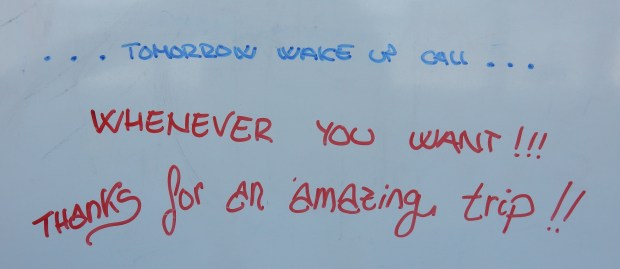 ... TOMORROW WAKE UP CALL ...
WHENEVER YOU WANT!!!
THANKS for an amazing trip!!